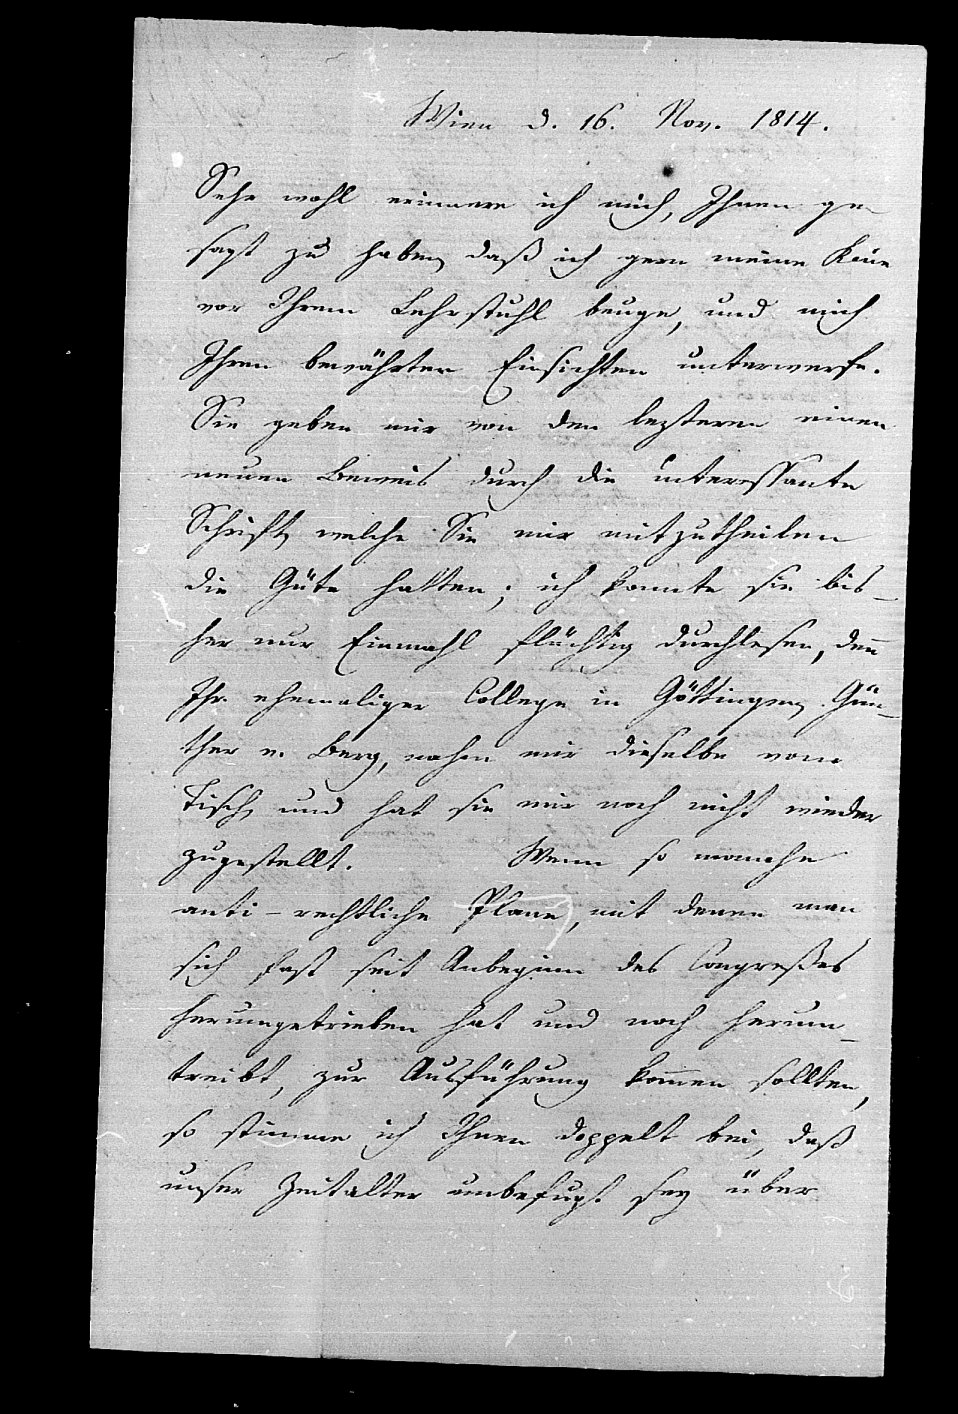 Wien d. 16. Nov. 1814.
Sehr wohl erinnere ich mich, Ihnen ge-
sagt zu haben, daß ich gern meine Knie
vor Ihrem Lehrstuhl beuge, und mich
Ihren bewährten Einsichten unterwerfe.
Sie geben mir von den lezteren einen
neuen Beweis durch die interessante
Schrift, welche Sie mir mitzutheilen
die Güte hatten; ich konnte sie bis-
her nur Einmahl flüchtig durchlesen, deñ
Ihr ehemaliger College in Göttingen, Gün-
ther v. Berg, nahm mir dieselbe vom
Tisch, und hat sie mir noch nicht wieder
zugestellt. Wenn so manche
anti-rechtliche Plane, mit denen man
sich fast seit Anbeginn des Congreßes
herumgetrieben hat und noch herum-
treibt, zur Ausführung kom̃en sollten,
so stimme ich Ihnen doppelt bei, daß
unser Zeitalter unbefugt sey über